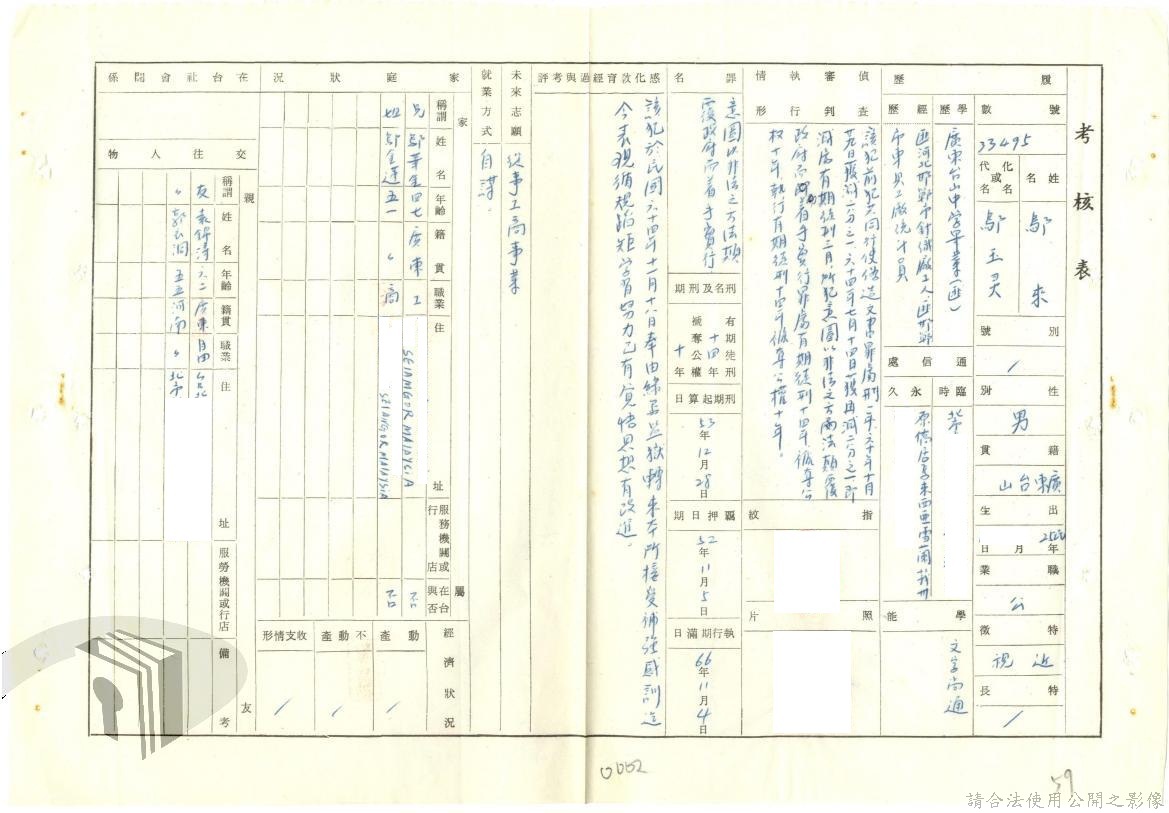 考核表
履歷
號數 33495
姓名 鄔來
化名或代名 鄔玉灵
別號 /
性別 男
籍貫 廣東台山
出生 25 年 月 日
職業 公
特徵 近視
特長 /
學歷 廣東台山中學畢業（匪）
經歷 匪河北邯鄲市針織廠工人，匪邯鄲
市車具工廠統計員
通信處
臨時
永久 原僑居馬來西亞雪蘭莪州
學能 文字尚通
偵查審判執行情形
該犯前犯共同行使偽造文書罪處刑一年，六十年十月
獲減二分之一，六十四年七月十四日獲再減二分之一即
減處有期徒刑三月，所犯意圖以非法之方法顛覆
政府而著手實行罪處有期徒刑十四年，褫奪公
權十年，執行有期徒刑十四年褫奪公權十年。
指紋
照片
罪名
意圖以非法之方法顛
覆政府而着手實行
刑名及刑期
有期徒刑十四年
褫奪公權十年
刑期起算日 53年12月28日
羈押日期 52年11月5日
執行期滿日 66年11月4日
感化教育經過與考評
該犯於民國六十四年十一月十八日奉由綠島監獄轉來本所接受補強感訓迄
今表現循規蹈矩學習努力已有覺悟思想有改進。
未來志願 從事工商事業
就業方式 自謀。
家庭狀況
家屬
稱謂 姓名 年齡 籍貫 職業 住址 服務機關或行店 在台與否
兄 鄔華金 四七 廣東 工 SELANGOR MALAYSIA 否
姐 鄔金蓮 五一 〃 商 SELANGOR MALAYSIA 否
經濟狀況
動產 /
不動產 /
收支情形 /
在台社會關係
親友
交往人物
稱謂 姓名 年齡 籍貫 職業 住址 服勞機關或行店 備考
友 袁錦濤 六二 廣東 自由 台北
〃 五五 河南 〃 北市
0002
59
請合法使用公開之影像